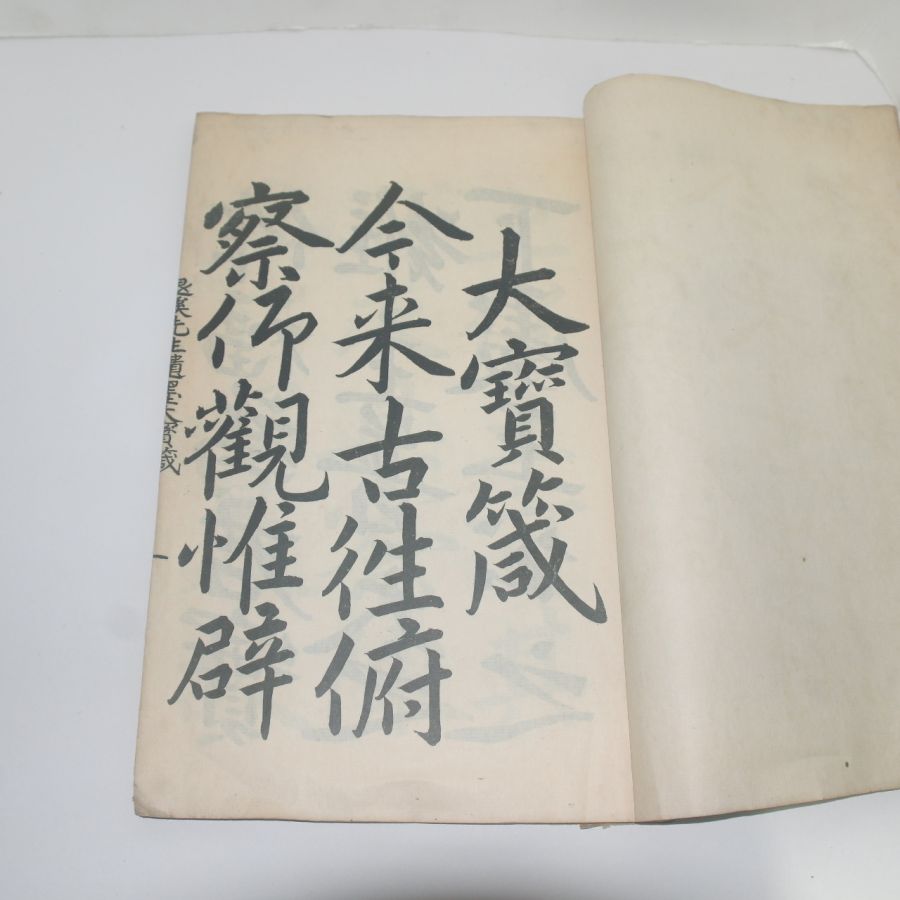 大寶箴
今来古往俯
察仰觀惟辟
退溪先生遺墨大寶箴
一